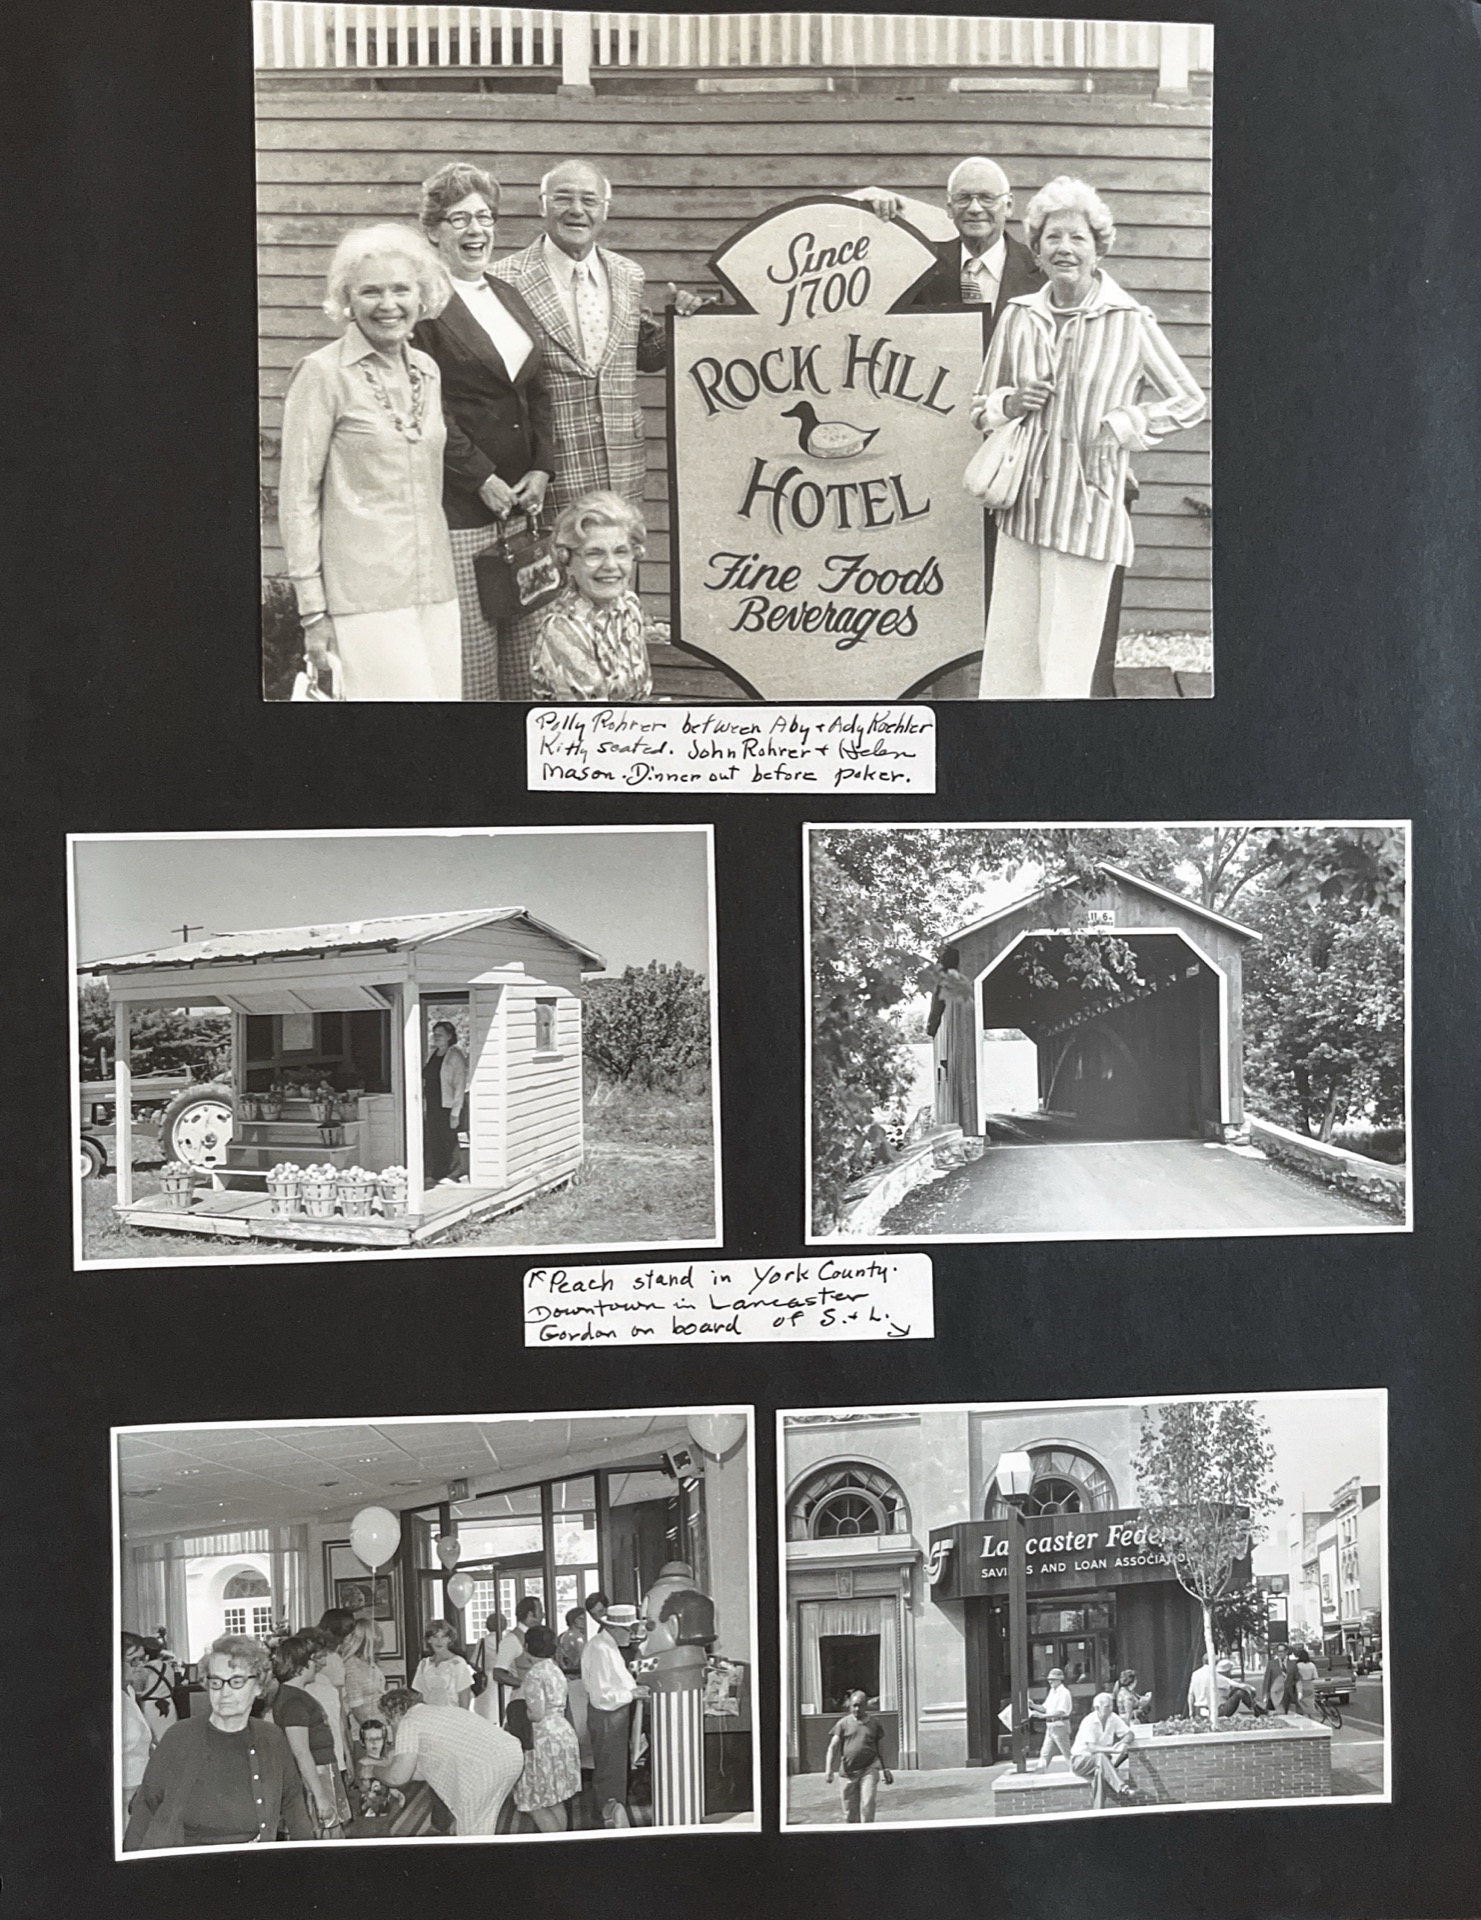 Since
1700
ROCK HILL
HOTEL
Fine Foods
Beverages
Polly Rohrer between Aby + Ady Koehler
Kitty seated. John Rohrer + Helen
Mason. Dinner out before poker.
11 6
↖Peach stand in York County.
Downtown in Lancaster
Gordon on board of S. + L. ↘
EXIT
Lancaster Fede
SAVI S AND LOAN ASSOCIATIO